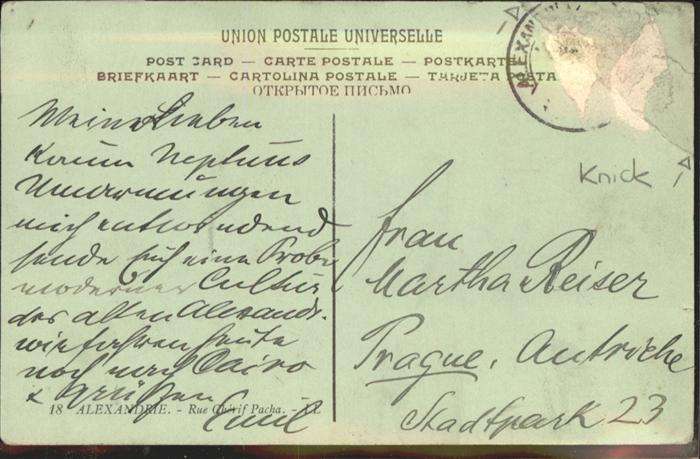 UNION POSTALE UNIVERSELLE
POST CARD — CARTE POSTALE — POSTKARTE
BRIEFKAART — CARTOLINA POSTALE — TARJETA POSTA
ОТКРЫТОЕ ПИСЬМО
ALEXAN
Knick
Meine Lieben
Kaum Neptuns
Umarmungen
mich entwendend
sende Euch eine Probe
moderner Cultur
des alten Alexandr.
wir fahren heute
noch nach Cairo
& grüßen
Emil
18 ALEXANDRIE. - Rue Chérif Pacha. - LL.
Frau
Martha Reiser
Prague, Autriche
Stadtpark 23